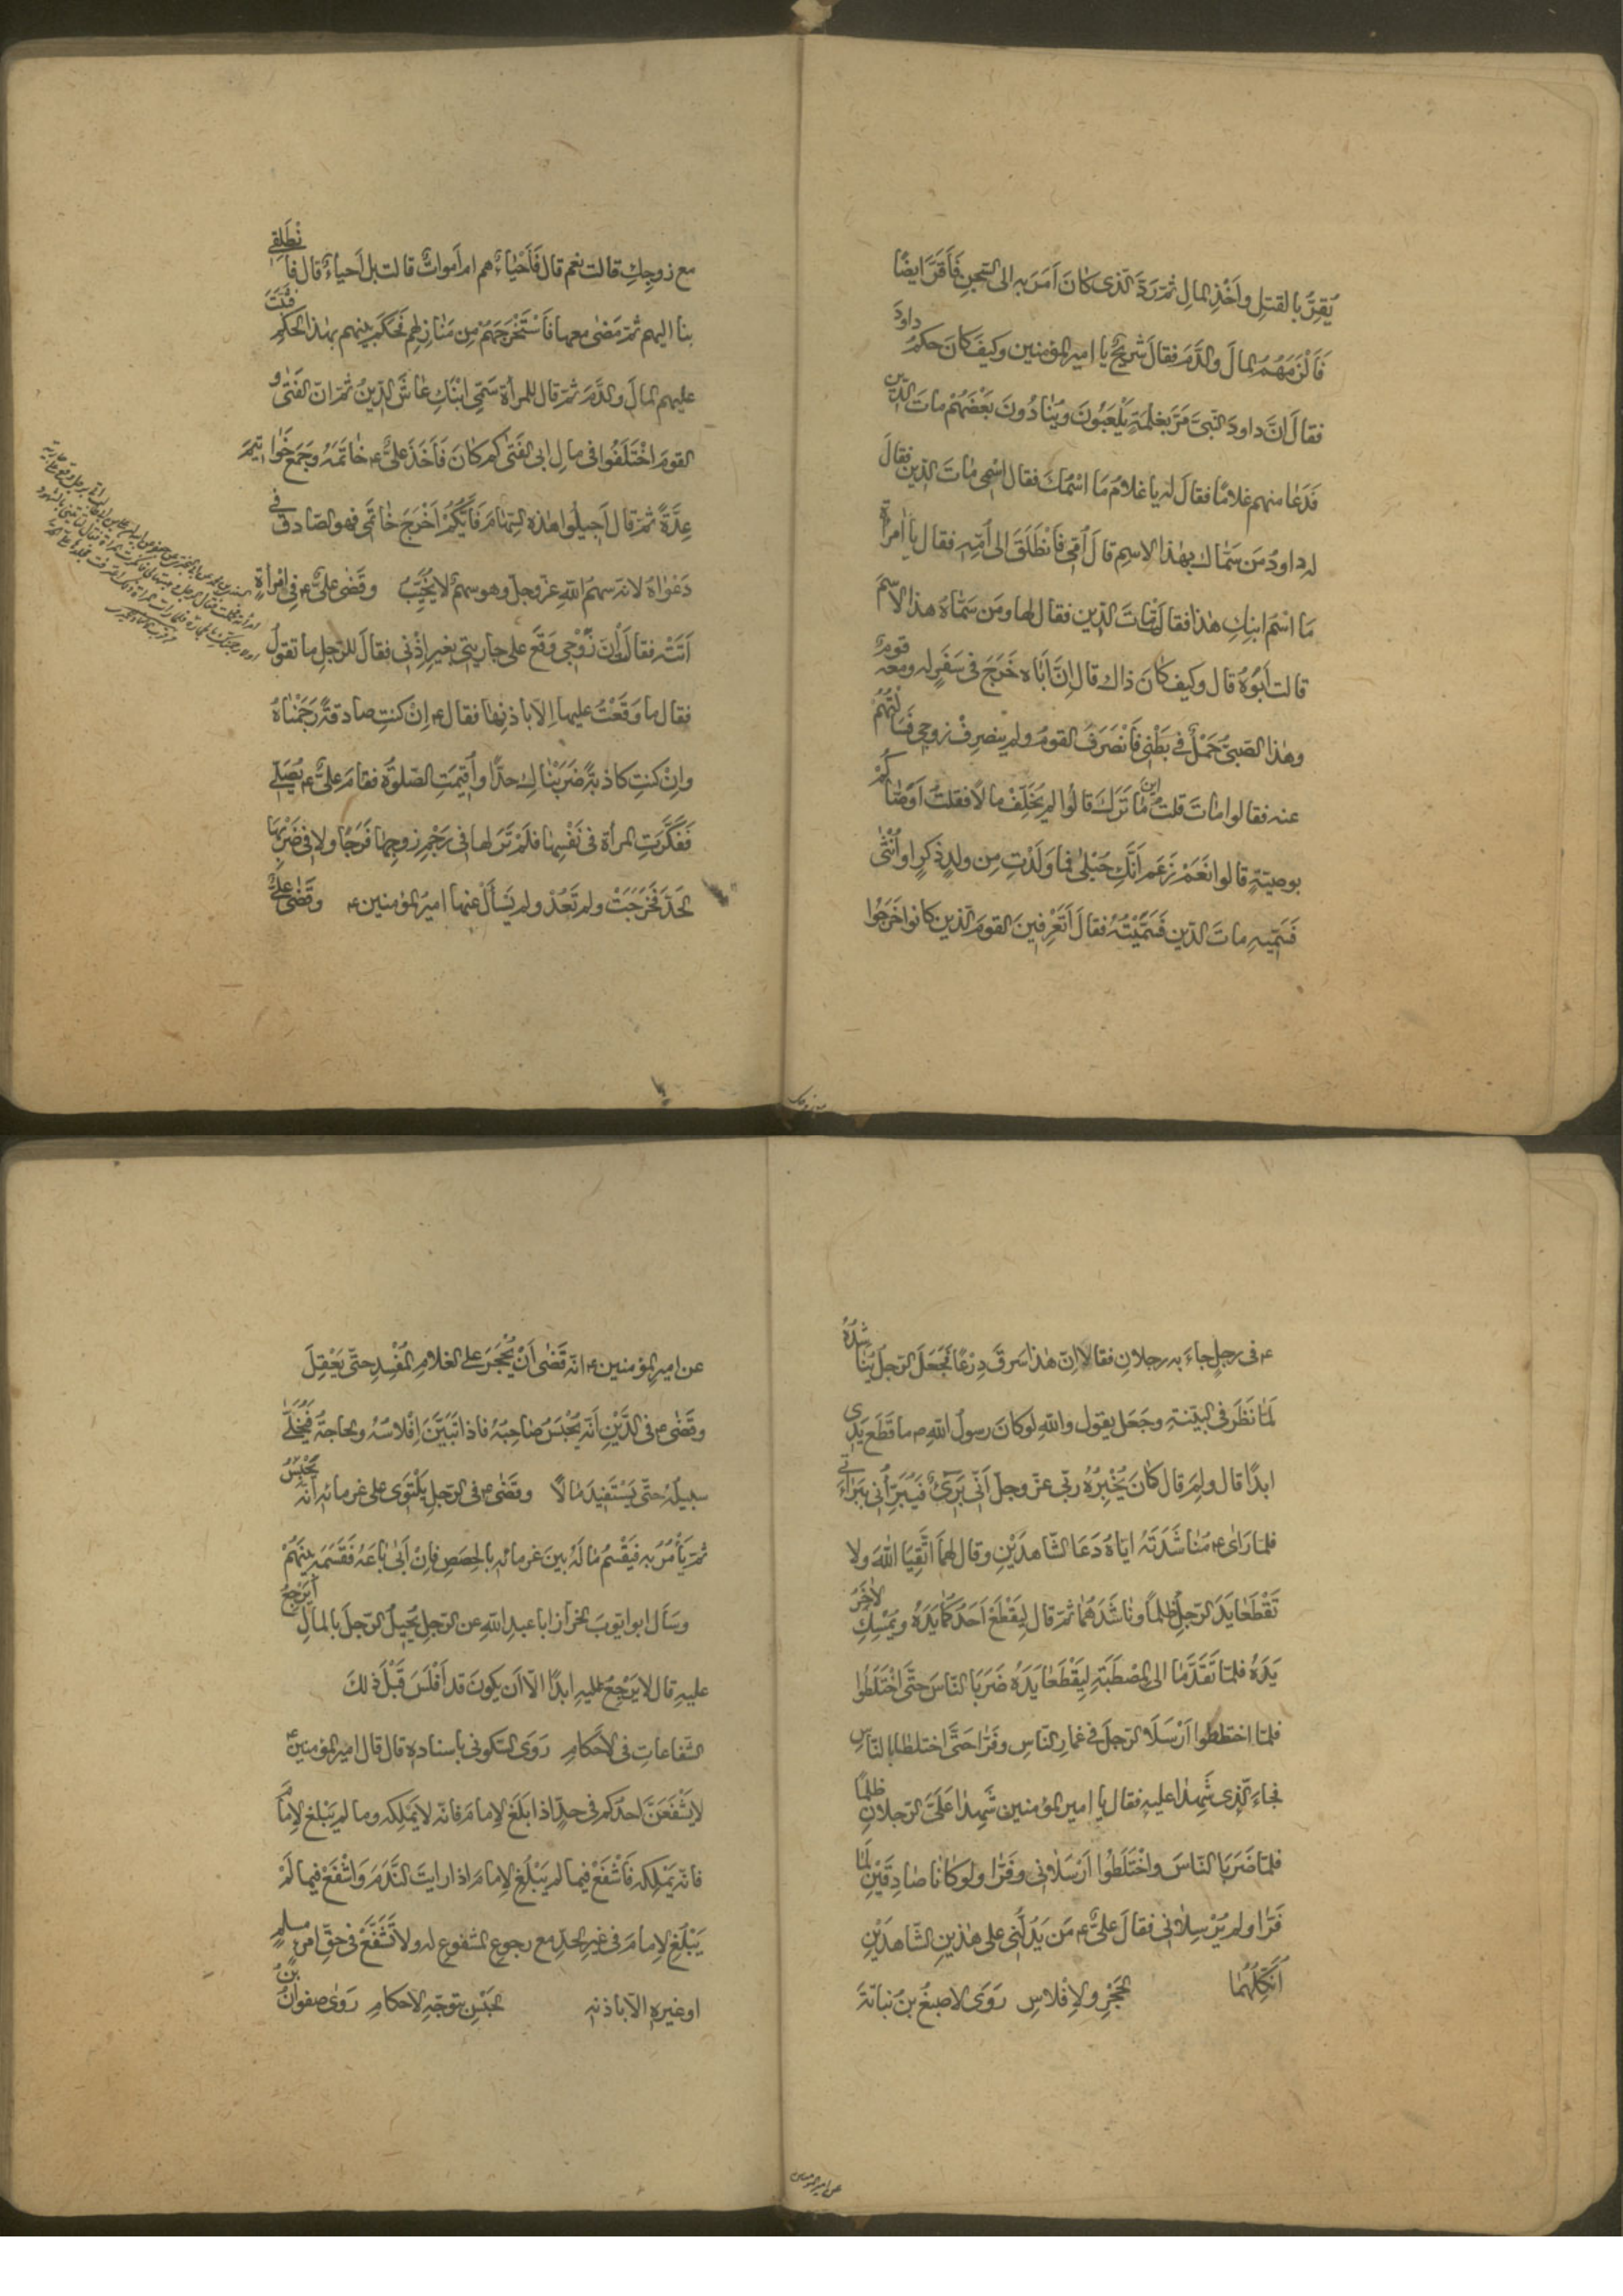 يُقِرُّ بالقتلِ وأَخْذِ المالِ ثمّ رَدَّ الّذى كانَ أَمَرَ بِهِ الى السّجنِ فَأَقَرَّ ايضًا
فَأَلْزَمَهُمُ المالَ والدَّمَ فقالَ شُرَيْحٌ يا امير المؤمنين وكيفَ كانَ حكمُ داودَ
فقالَ انَّ داودَ النّبىَّ مَرَّ بغِلْمَةٍ يَلْعَبُونَ ويُنادُونَ بَعْضَهُمْ ماتَ الدّين
فَدَعا منهم غلامًا فقالَ له يا غلامُ مَا اسْمُكَ فقال اسْمِى ماتَ الدّين فقالَ
له داودُ مَن سَمّاكَ بهذا الاسمِ قالَ أُمّى فَانْطَلَقَ الى أُمّهِ فقال يا امرأة
مَا اسْمُ ابنِكِ هذا فقالَتْ ماتَ الدّين فقال لها ومَن سَمّاهُ هذا الاسْمَ
قالت أَبُوهُ قال وكيف كانَ ذاك قال إنَّ أَبَاه خَرَجَ فى سَفَرٍ له ومعه قومٌ
وهذا الصّبىُّ حَمْلٌ فى بَطْنِى فَانْصَرَفَ القومُ ولم ينصرِفْ زوجى فَسَألْتُهُمْ
عنه فقالوا ماتَ قلتُ أين مَا تَرَكَ قالُوا لم يُخَلِّفْ مالًا فقلتُ أَوَصّاكُمْ
بوصيّةٍ قالوا نَعَمْ زَعَمَ أَنَّكِ حُبْلى فما وَلَدْتِ مِن ولدٍ ذَكَرٍ او أُنْثى
فَسَمّيهِ ماتَ الدّين فَسَمَّيْتُهُ فقالَ أَتَعْرِفينَ القومَ الّذين كانوا خَرَجُوا
مع زوجِكِ
مع زوجِكِ قالت نعم قال فَأَحْياءٌ هم ام أمواتٌ قالت بل أحياءٌ قال فَانْطَلِقى
بنا اليهم ثمّ مَضى معها فَاسْتَخْرَجَهُمْ مِن مَنازِلِهم فَحَكَمَ بينهم بهذا الحكمِ فثَبَتَ
عليهم المالَ والدَّمَ ثمّ قال للمرأة سَمِّى ابْنَكِ عاشَ الدّينُ ثمّ انّ الفَتى و
القومَ اخْتَلَفُوا فى مالِ ابى الفَتى كم كانَ فَأَخَذَ علىٌّ ع خاتَمَهُ وجَمَعَ خَواتيمَ
عِدَّةً ثمّ قال أَجيلُوا هذه السّهامَ فَأَيُّكُمْ أَخْرَجَ خاتَمى فهو الصّادق فى
دَعْواهُ لانّه سهمُ اللهِ عزّ وجلّ وهو سهمٌ لا يُخَيَّبُ وقَضى علىٌّ ع فى امْرأةٍ
أَتَتْهُ فقالَتْ إنَّ زَوْجى وَقَعَ على جاريتى بغيرِ إذْنى فقالَ للرّجلِ ما تقولُ
فقال ما وَقَعْتُ عليها إلّا باذنِها فقال ع إنْ كنتِ صادقةً رَجَمْناهُ
وإنْ كنتِ كاذبةً ضَرَبْناكِ حدًّا وأُقيمَتِ الصّلوةُ فقامَ علىٌّ ع يُصَلّى
فَفَكَّرَتِ المرأة فى نَفْسِها فلَمْ تَرَ لها فى رَجْمِ زوجِها فَرَجًا ولا فى ضَرْبِها
الحَدَّ فَخَرَجَتْ ولم تَعُدْ ولم يَسْأَلْ عنها اميرُ المؤمنين ع وقَضى علىٌّ
ع فى رجلٍ جاءَ به رجلانِ فقالا انّ هذا سَرَقَ دِرْعًا فَجَعَلَ الرّجلُ يُناشِدُهُ
لَمّا نَظَرَ فى البيّنةِ وجَعَلَ يقول واللهِ لو كانَ رسولُ اللهِ ص ما قَطَعَ يَدِى
ابدًا قال ولِمَ قال كانَ يُخْبِرُهُ ربّى عزّ وجلّ أَنّى بَرِىءٌ فَيُبَرِّئُنى بِبَراءَتى
فلمّا رَاى ع مُناشَدَتَهُ ايّاهُ دَعَا الشّاهدَيْنِ وقال لهما اتَّقِيَا اللهَ ولا
تَقْطَعا يَدَ الرّجلِ ظلماً وناشَدَهُما ثمّ قال لِيَقْطَعْ أحدُكما يَدَهُ ويُمْسِكِ الآخَرُ
يَدَهُ فلمّا تَقَدَّما الى المِصْطَبَةِ لِيَقْطَعا يَدَهُ ضَرَبَا النّاسَ حتّى اخْتَلَطُوا
فلمّا اختلطوا أَرْسَلَا الرّجلَ فى غمارِ النّاسِ وفَرّا حَتّى اختلطا بالنّاسِ
فجاءَ الّذى شَهِدا عليهِ فقال يا امير المؤمنين شَهِدا عَلَىَّ الرّجلانِ ظلمًا
فلمّا ضَرَبَا النّاسَ واخْتَلَطُوا أَرْسَلانى وفَرّا ولو كانا صادِقَيْنِ لَمَا
فَرّا ولم يُرْسِلانى فقالَ علىٌّ ع مَن يَدُلُّنى على هذينِ الشّاهدَيْنِ
أُنَكِّلْهُما الحَجْرِ والإفْلاسِ رَوَى الاصبغُ بنُ نباتةَ
عن امير المؤمنين
عن امير المؤمنين ع انّه قَضى أَنْ يُحْجَرَ على الغلامِ المُفْسِدِ حتّى يَعْقِلَ
وقَضى ع فى الدَّيْنِ أنّه يُحْبَسُ صاحِبُهُ فاذا تَبَيَّنَ إفْلاسُهُ والحاجةُ فَيُخَلّى
سبيلُهُ حتّى يَسْتَفيدَ مالًا وقَضى ع فى الرّجلِ يَلْتَوى على غرمائه أنّه يُحْبَسُ
ثمّ يَأْمُرُ به فيَقْسِمُ مالَهُ بينَ غرمائهِ بالحِصَصِ فإنْ أَبى باعَهُ فَقَسَمَهُ بينهُمْ
وسَأَلَ ابو ايّوبَ الخزّاز ابا عبدِ اللهِ عن الرّجلِ يُحيلُ الرّجلَ بالمالِ أيَرْجِعُ
عليهِ قال لا يَرْجِعُ عليهِ ابدًا الّا أن يكونَ قد أَفْلَسَ قَبْلَ ذلكَ
الشّفاعاتِ فى الأحكامِ رَوَى السّكونى باسناده قال قال امير المؤمنين ع
لا يَشْفَعَنَّ احدُكم فى حدٍّ اذا بَلَغَ الإمامَ فانّه لا يَمْلِكه وما لم يَبْلغِ الإمامَ
فانّه يَمْلِكه فَاشْفَعْ فيما لم يَبْلُغِ الإمامَ اذا رايتَ النَّدَمَ وَاشْفَعْ فيما لَمْ
يَبْلُغِ الإمامَ فى غيرِ الحدِّ مع رجوعِ المشفوعِ له ولا تَشْفَعْ فى حقِّ امرئٍ مسلمٍ
او غيرِهِ الّا باذنهِ الحَبْسِ بتوجّهِ الأحكامِ رَوى صفوانُ بنُ